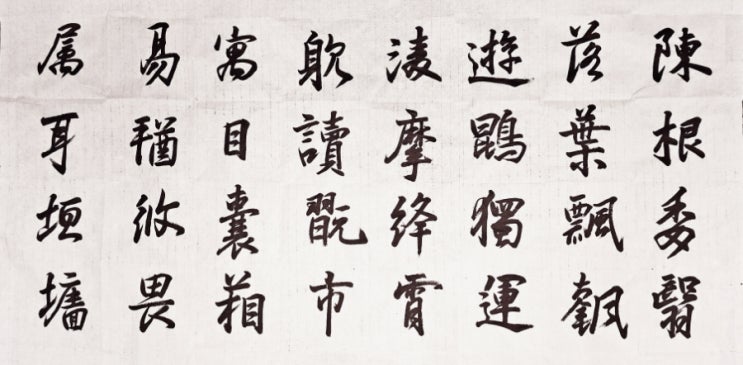 陳根委翳
落葉飄颻
遊鵾獨運
淩摩絳霄
躭讀翫市
寓目囊箱
易輶攸畏
属耳垣墻